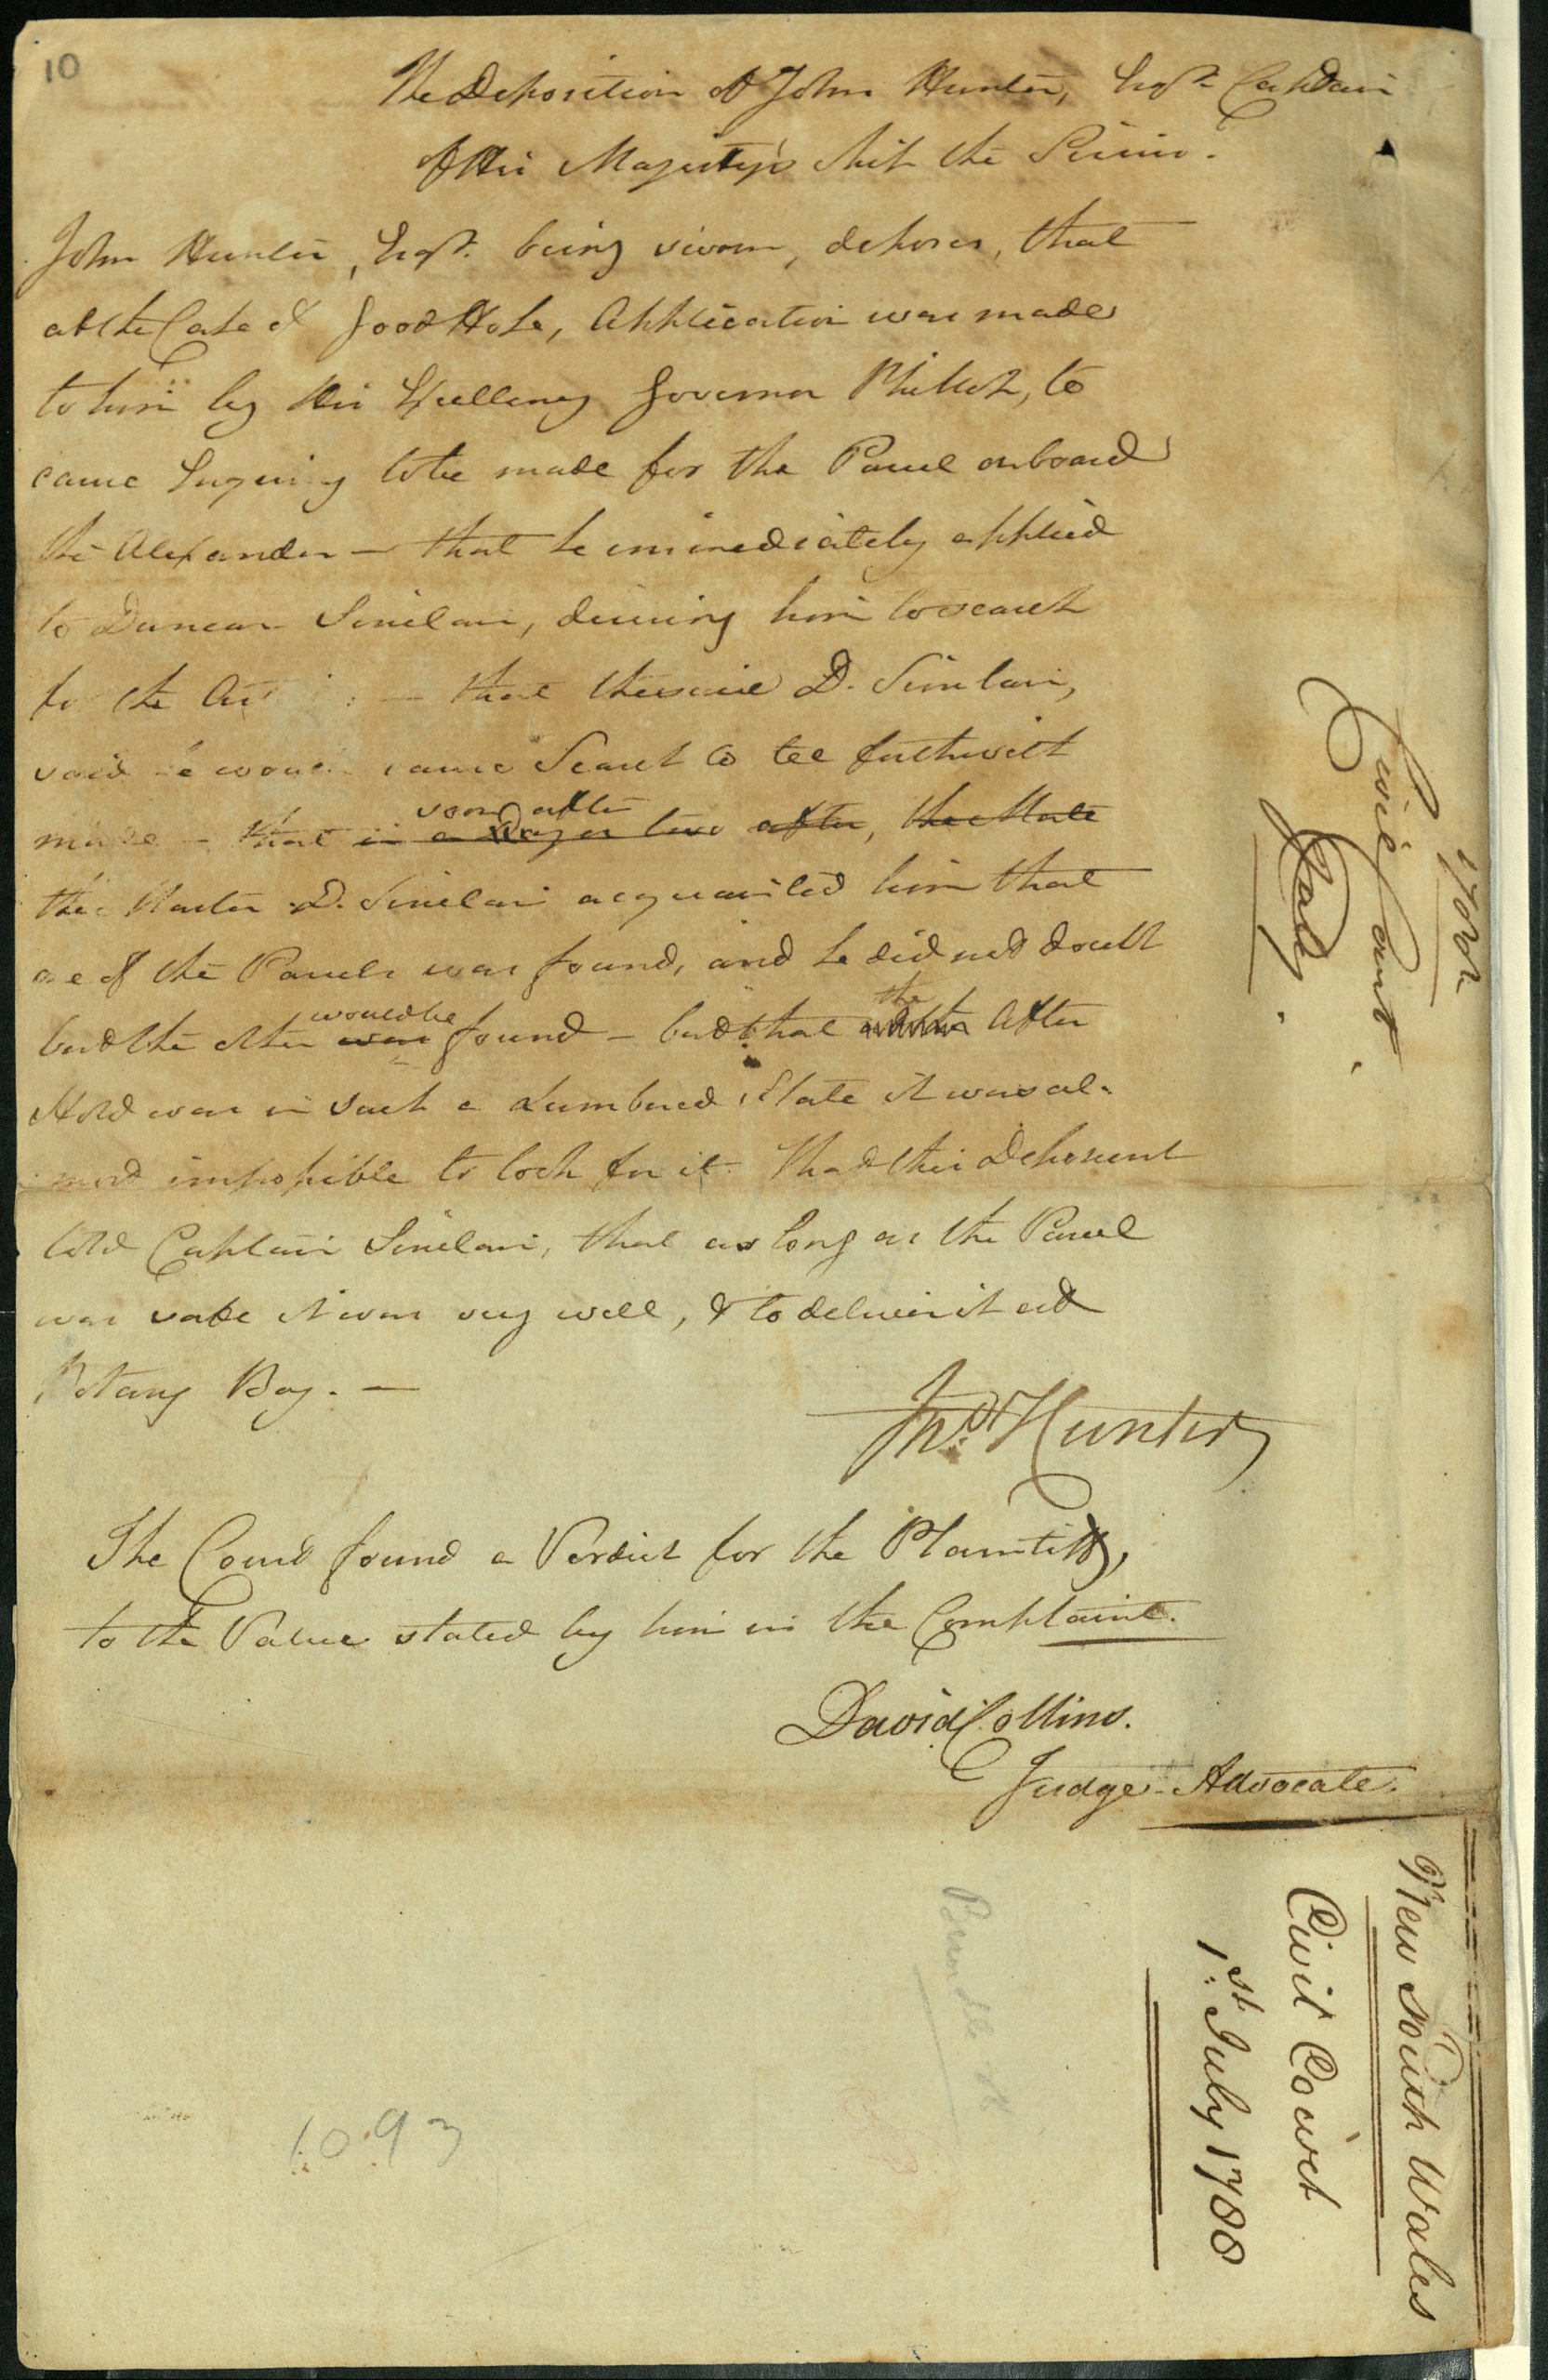 10
The Deposition of John Hunter, Esqr. Captain
of His Majesty's Ship the Sirius.
John Hunter, Esqr. being sworn, deposes, that
at the Cape of Good Hope, Application was made
to him by His Excellency Governor Phillip, to
cause Inquiry to be made for the Parcel on board
the Alexander — that he immediately applied
to Duncan Sinclair, desiring him to search
for the — that the said D. Sinclair,
said he would cause Search to be forthwith
made — that in a Day or two after, the Mate
soon after
the Master D. Sinclair acquainted him that
one of the Parcels was found, and he did not doubt
but the other was would be found — but that the After
Hold was in such a Lumbered State it was al-
most impossible to look for it. That this Deponent
told Captain Sinclair, that as long as the Parcel
was safe it was very well, & to deliver it at
Botany Bay. —
Jno. Hunter
The Court found a Verdict for the Plaintiff,
to the Value stated by him in the Complaint.
David Collins.
Judge-Advocate.
1788
Civil Court
July
New South Wales
Civil Court
1st. July 1788
Bundle
1093